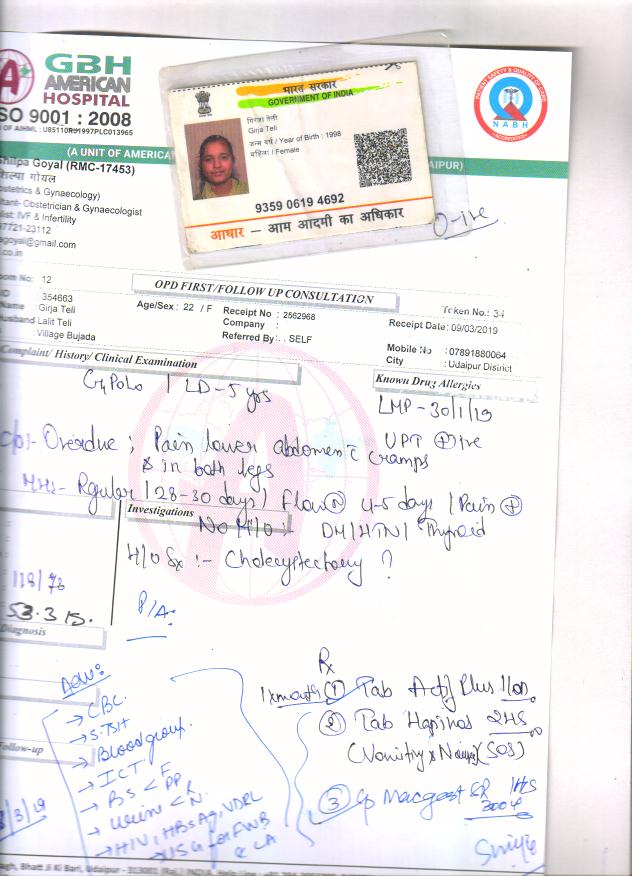 GBH
AMERICAN
HOSPITAL
ISO 9001 : 2008
U85110RJ1997PLC013965
(A UNIT OF AMERICA
UDAIPUR)
PATIENT SAFETY & QUALITY OF CARE
NABH
ACCREDITATION
भारत सरकार
GOVERNMENT OF INDIA
गिरजा तेली
Girja Teli
जन्म वर्ष / Year of Birth : 1998
महिला / Female
9359 0619 4692
आधार - आम आदमी का अधिकार
Shilpa Goyal (RMC-17453)
गोयल
Obstetrics & Gynaecology)
Consultant- Obstetrician & Gynaecologist
IVF & Infertility
97721-23112
goyal@gmail.com
.co.in
O-ive
Room No: 12
OPD FIRST/FOLLOW UP CONSULTATION
Token No.: 34
ID : 354663
Name : Girja Teli
Age/Sex : 22 / F
Receipt No : 2562968
Receipt Date : 09/03/2019
Husband: Lalit Teli
Company :
Village Bujada
Referred By : . SELF
Mobile No : 07891880064
City : Udaipur District
Complaint/ History/ Clinical Examination
Known Drug Allergies
G4P0L0 / LD-5 yrs
LMP - 30/1/19
c/o:- Overdue ; Pain lower abdomen c cramps
UPT +ive
& in both legs
MHs- Rgular / 28-30 days / Flow N 4-5 days / Pain +
Investigations
No H/O :- DM/HTN/ Thyroid
H/O Sx :- Cholecystectomy ?
118/78
53.315.
P/A:
Diagnosis
Adv:
→ CBC.
→ S.TSH
→ Blood group.
→ ICT
→ BS < F PP
→ Urine < R N
→ HIV, HBsAg, VDRL
→ USG for FWB & CA
Follow-up
/3/19
Rx
1xmonth ① Tab Actif Plus 1 OD
② Tab Hapinos 2HS
(Vomiting & Nausea) (SOS)
③ Cp Macgest SR 300 1HS
Bhatt Ji Ki Bari, Udaipur - 313001 (Raj.) INDIA,